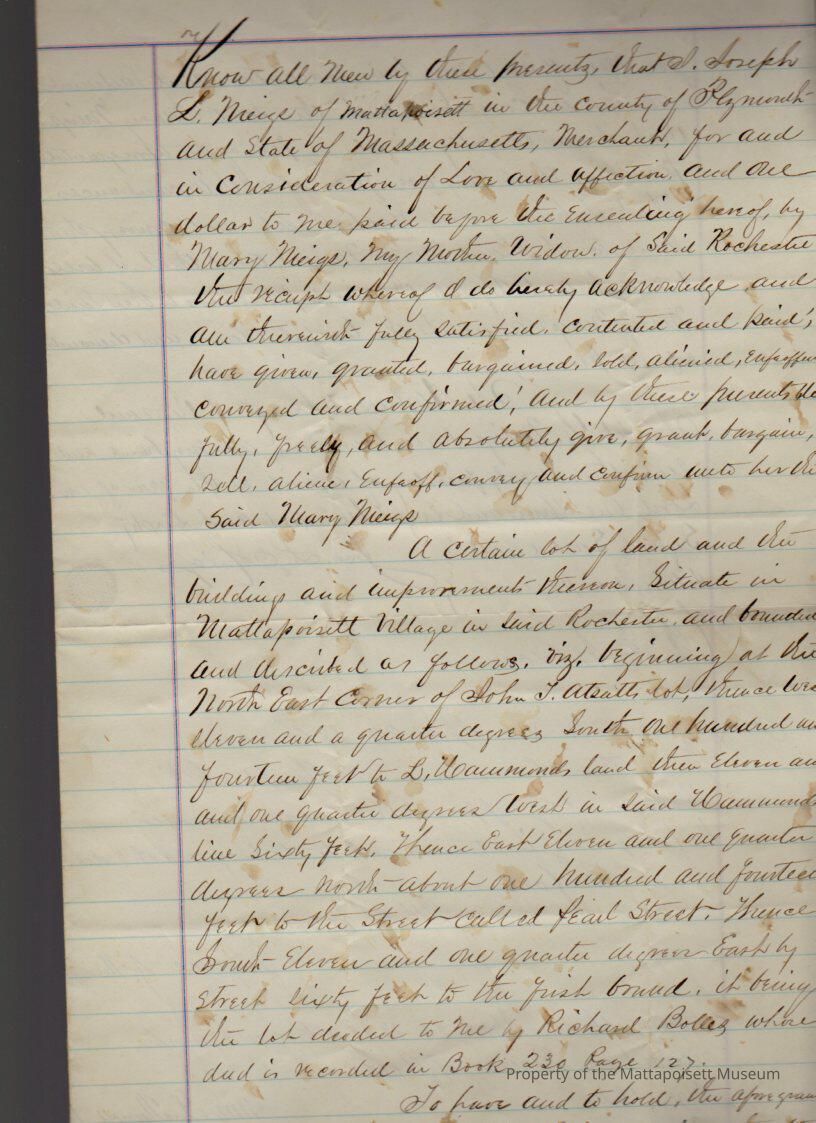 Know all Men by these presents, that I. Joseph
L. Meigs of Mattapoisett in the county of Plymouth
and State of Massachusetts, Merchant, for and
in Consideration of Love and affection, and one
dollar to me paid before the Ensealing hereof, by
Mary Meigs, My Mother, Widow, of Said Rochester
the receipt whereof I do hereby acknowledge and
am therewith fully satisfied, contented and paid;
have given, granted, bargained, sold, aliened, Enfeoffed
conveyed and confirmed; And by these presents do
fully, freely, and absolutely give, grant, bargain,
Sell, aliene, Enfeoff, convey and confirm unto her the
Said Mary Meigs
A certain lot of land and the
buildings and improvements thereon, Situate in
Mattapoisett Village in Said Rochester, and bounded
and described as follows, viz, beginning at the
North East Corner of John T. Atsatts lot, thence Wes
Eleven and a quarter degrees South one hundred an
fourteen feet to L. Hammonds land then Eleven an
and one quarter degrees West in Said Hammonds
line Sixty feet, thence East Eleven and one quarter
degrees North about one hundred and fourteen
feet to the Street Called Pearl Street. Thence
South Eleven and one quarter degrees East by
Street Sixty feet to the first bound, it being
the lot deeded to me by Richard Bolles whose
deed is recorded in Book 230 Page 127.
To have and to hold, the afore gran
Property of the Mattapoisett Museum